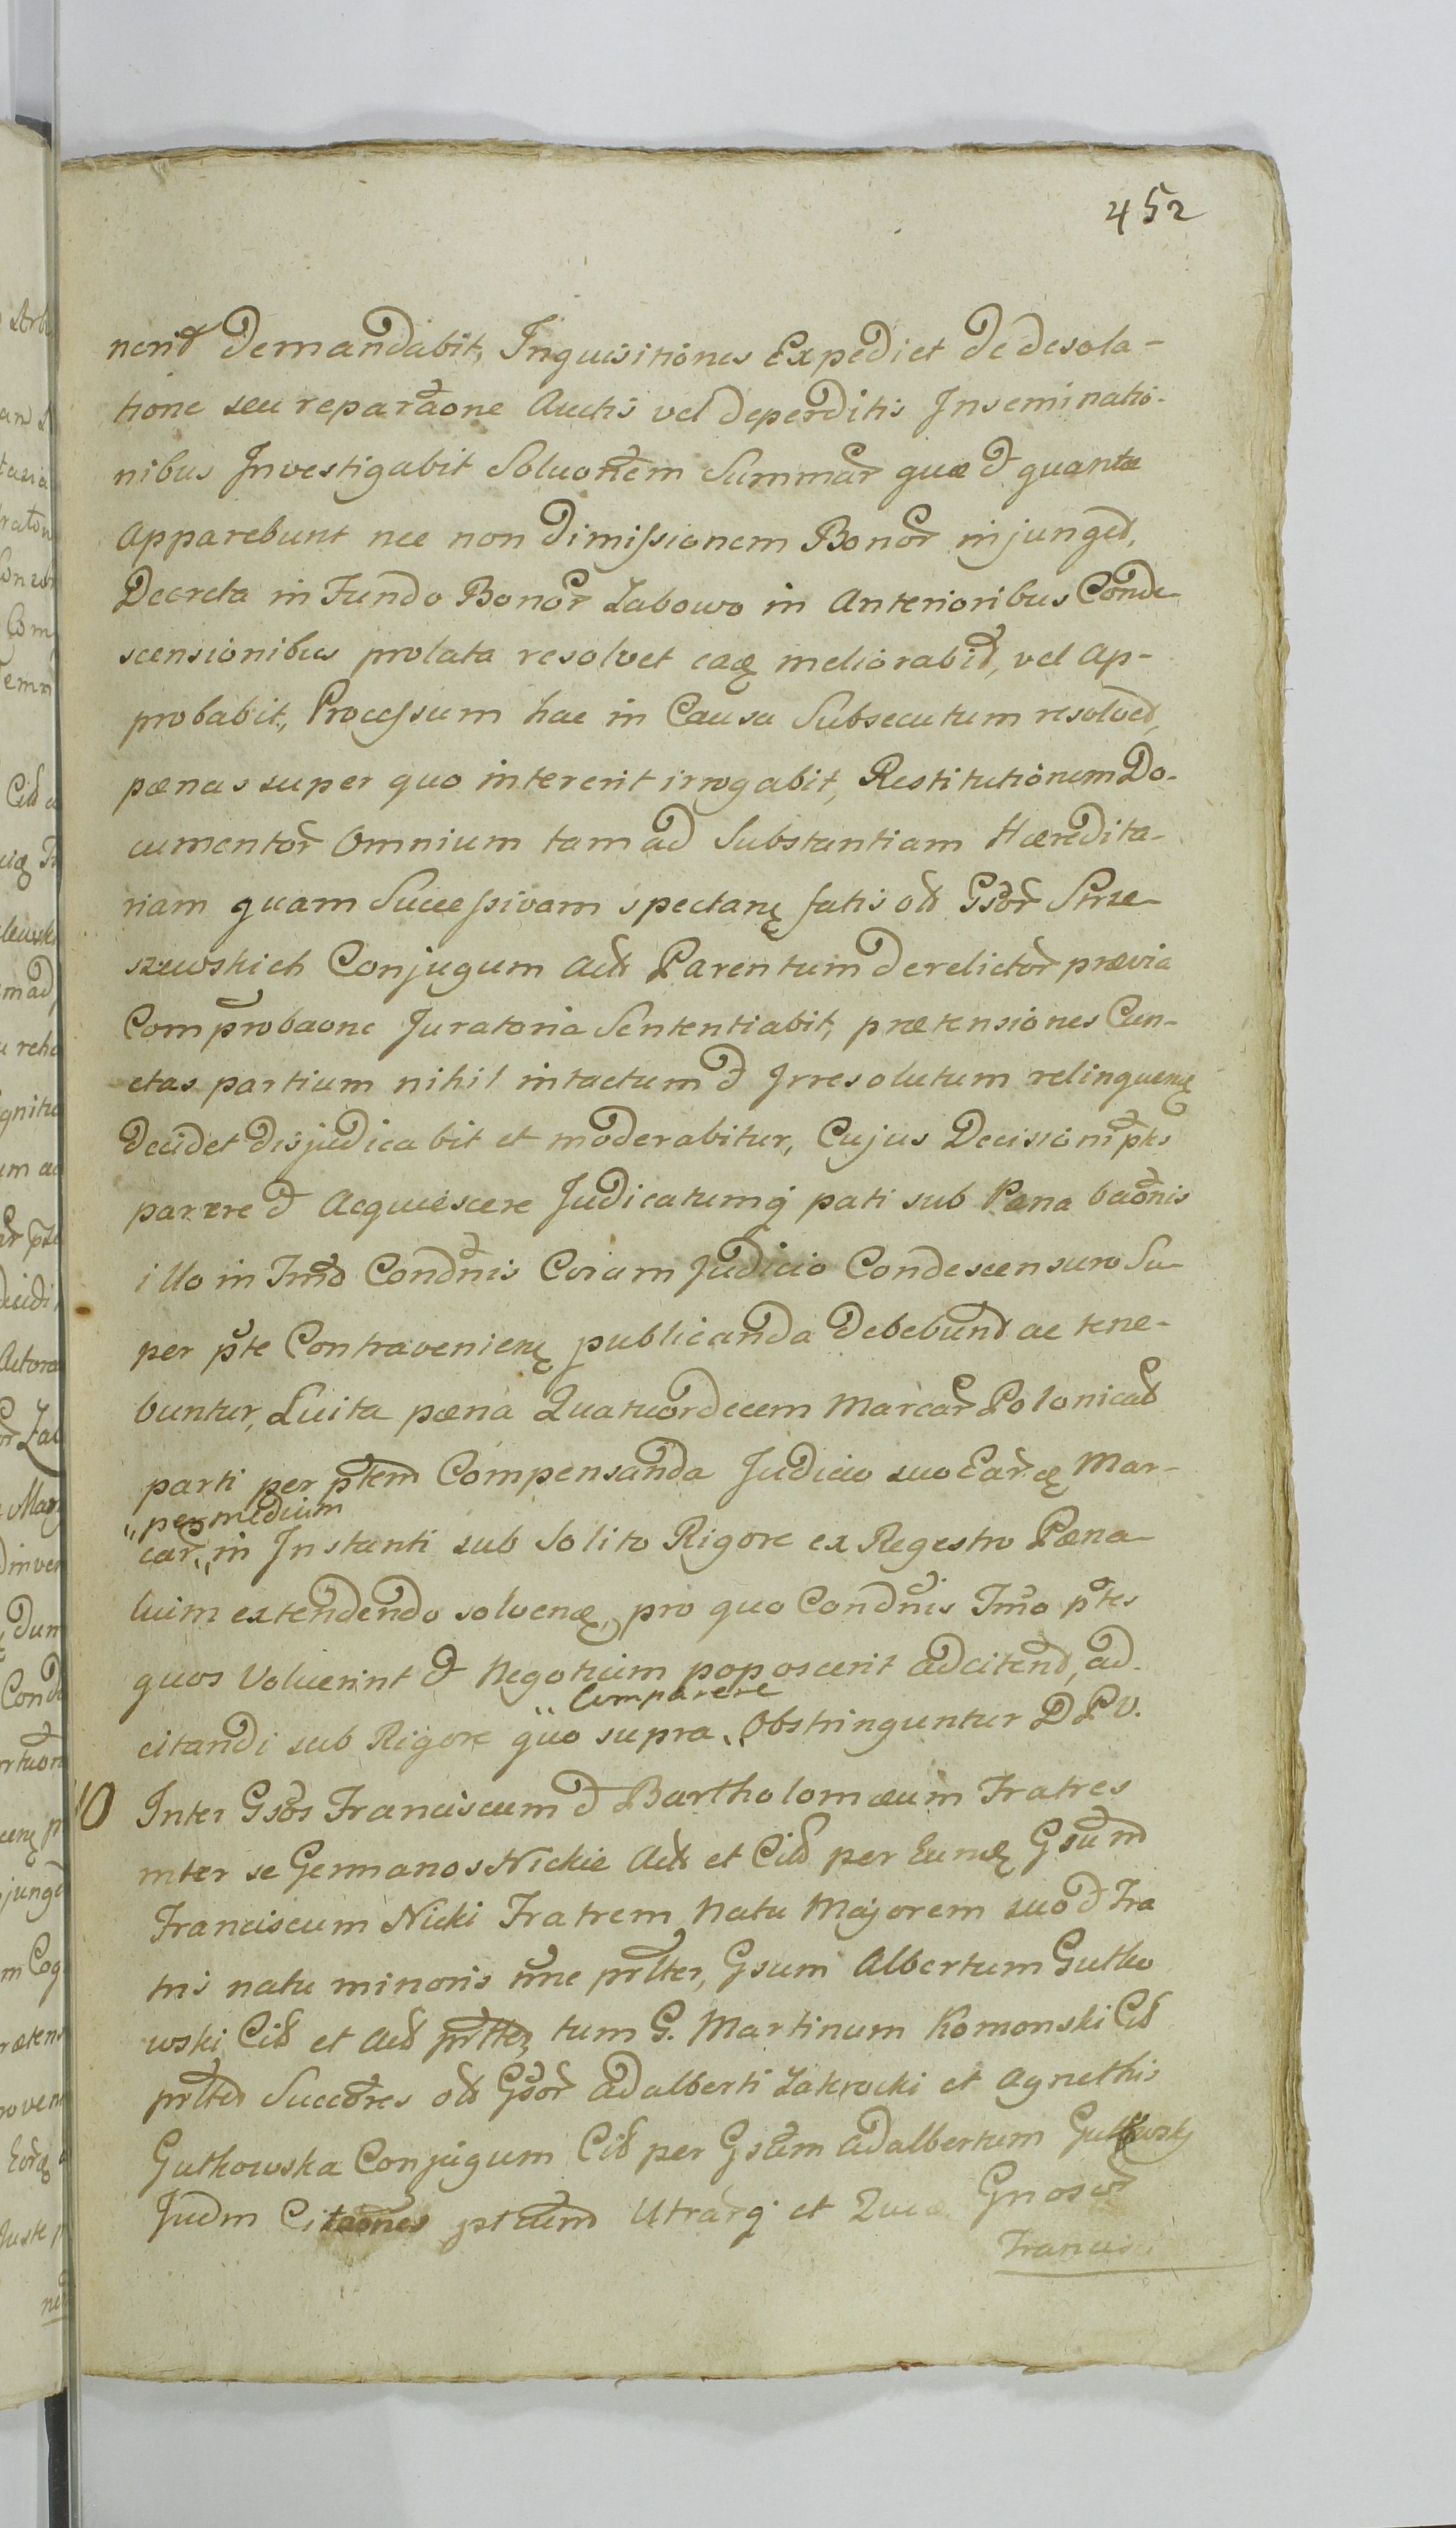 452
nerit Demandabit, Inquisitiones Expediet de desola-
tione seu reparaone Auctis vel deperditis Inseminatio-
nibus Investigabit Soluonem Summar quæ et quantæ
apparebunt nec non Dimissionem Bonor injunget,
Decreta in Fundo Bonor Łabowo in Anterioribus Conde-
scensionibus prolata resolvet eaq meliorabit, vel ap-
probabit, Processum hac in Causa Subsecutum resolvet,
pænas super quo intererit irrogabit, Restitutionem Do-
cumentor Omnium tam ad Substantiam Hæredita-
riam quam Successivam spectan fatis ol Gsor Strze-
szewskich Conjugum Act Parentum Derelictor prævia
Comprobaone Juratoria Sententiabit, prætensiones Cun-
ctas partium nihil intactum et Irresolutum relinquen
Decidet disjudicabit et moderabitur, Cujus Decisioni ptes
parere et Acquiescere Judicatumq pati sub Pæna baonis
illo in Tmo Condnis Coram Judicio Condescensuro Su-
per pte Contravenien publicanda debebunt ac tene-
buntur, Luita pæna Quatuordecem Marcar Polonical
parti per ptem Compensanda Judicio suo Earq Mar-
" per medium
car " in Instanti sub Solito Rigore ex Regestro Pæna-
lium extendendo solven, pro quo Condnis Tmo ptes
quos Voluerint et Negotium poposcerit adcitend, ad
" Comparere
citandi sub Rigore quo supra " Obstringuntur D P V.
10 Inter Gsos Franciscum et Bartholomæum Fratres
inter se Germanos Nickie Act et Cit per eund Gsum
Franciscum Nicki Fratrem Natu Majorem suo et Fra
tris natu minoris nne prlter, Gsum Albertum Gutko
wski Cit et Act prlter, tum G. Martinum Komonski Cit
prlter Succores ol Gsor Adalberti Zakrocki et Agnethis
Gutkowska Conjugum Cit per Gsum Adalbertum Gutkowski
Judm Citaones ptium Utrarq et Gnosor
Francis